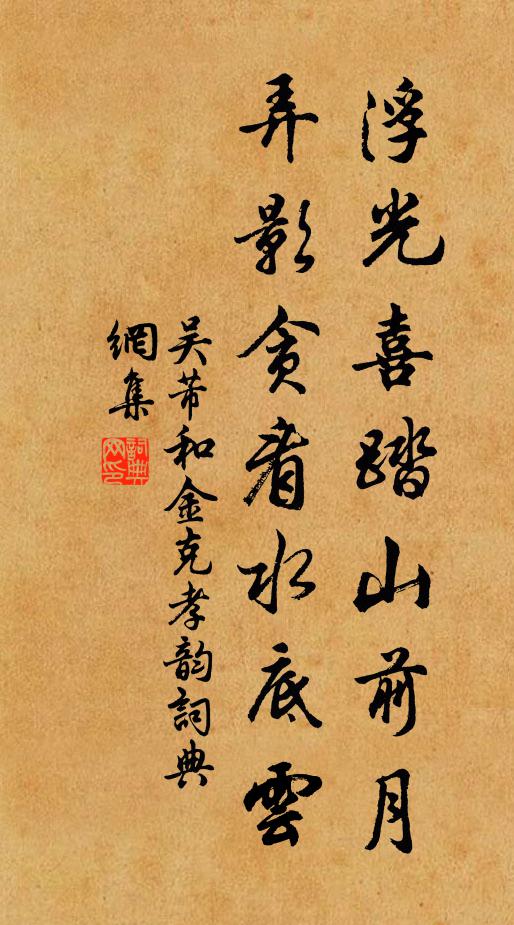 浮光喜踏山前月
弄影贪看水底雲
吴芾和金克孝韵詞典
網集
詞典
网印